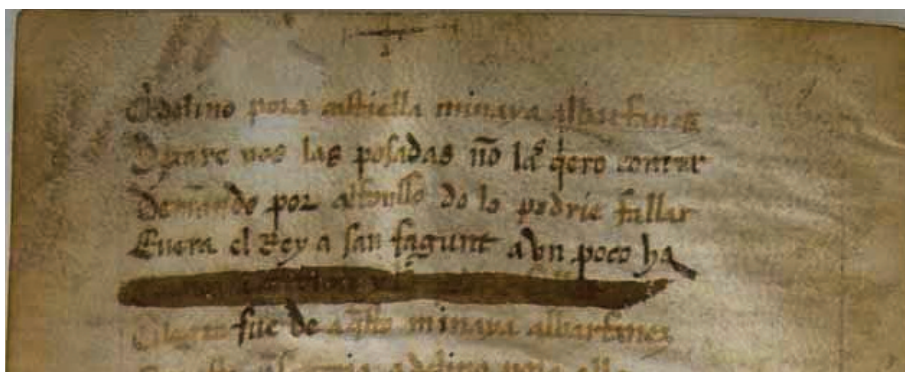 Adelino pora castiella minaya albarfanez
Dexare uos las posadas nõ las q̃ero contar
Demãndo por alfonsso do lo podrie fallar
Fuera el Rey a san fagunt avn poco ha
Alegre fue de aq̃sto minaya albarfanez
adelino pora alla